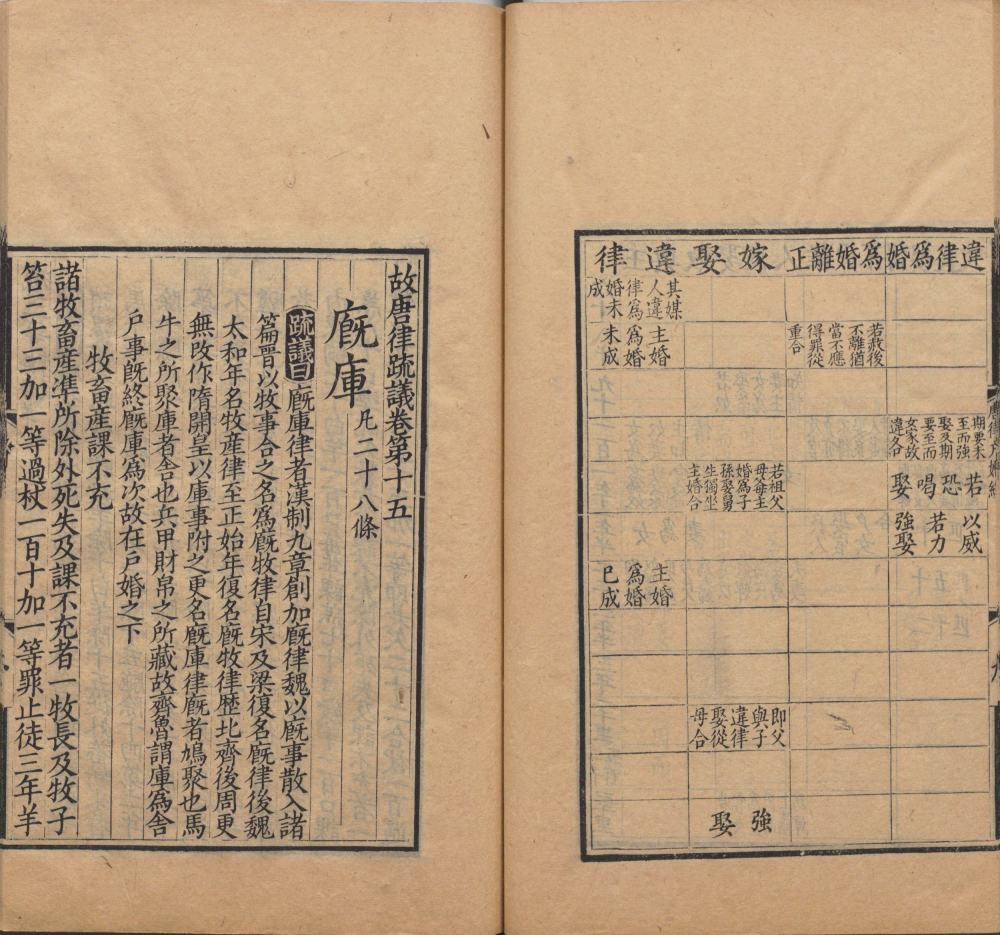 違律爲婚爲婚離正
嫁娶違律
期要未
至而強
娶及期
要至而
女家故
違各合
若恐喝娶
以威若力強娶
若赦後
不離猶
當不應
得罪從
重合
若祖父
母每主
婚爲子
孫娶舅
生獨坐
主婚合
即父
與子
違律
娶從
母合
其媒
人違
律爲
婚未
成
主婚
爲婚
未成
主婚
爲婚
已成
強娶
故唐律疏議卷第十五
廐庫凡二十八條
疏議曰廐庫律者漢制九章創加廐律魏以廐事散入諸
篇晉以牧事合之名爲廐牧律自宋及梁復名廐律後魏
太和年名牧產律至正始年復名廐牧律歷北齊後周更
無改作隋開皇以庫事附之更名廐庫律廐者鳩聚也馬
牛之所聚庫者舍也兵甲財帛之所藏故齊魯謂庫爲舍
戶事旣終廐庫爲次故在戶婚之下
牧畜產課不充
諸牧畜產準所除外死失及課不充者一牧長及牧子
笞三十三加一等過杖一百十加一等罪止徒三年羊